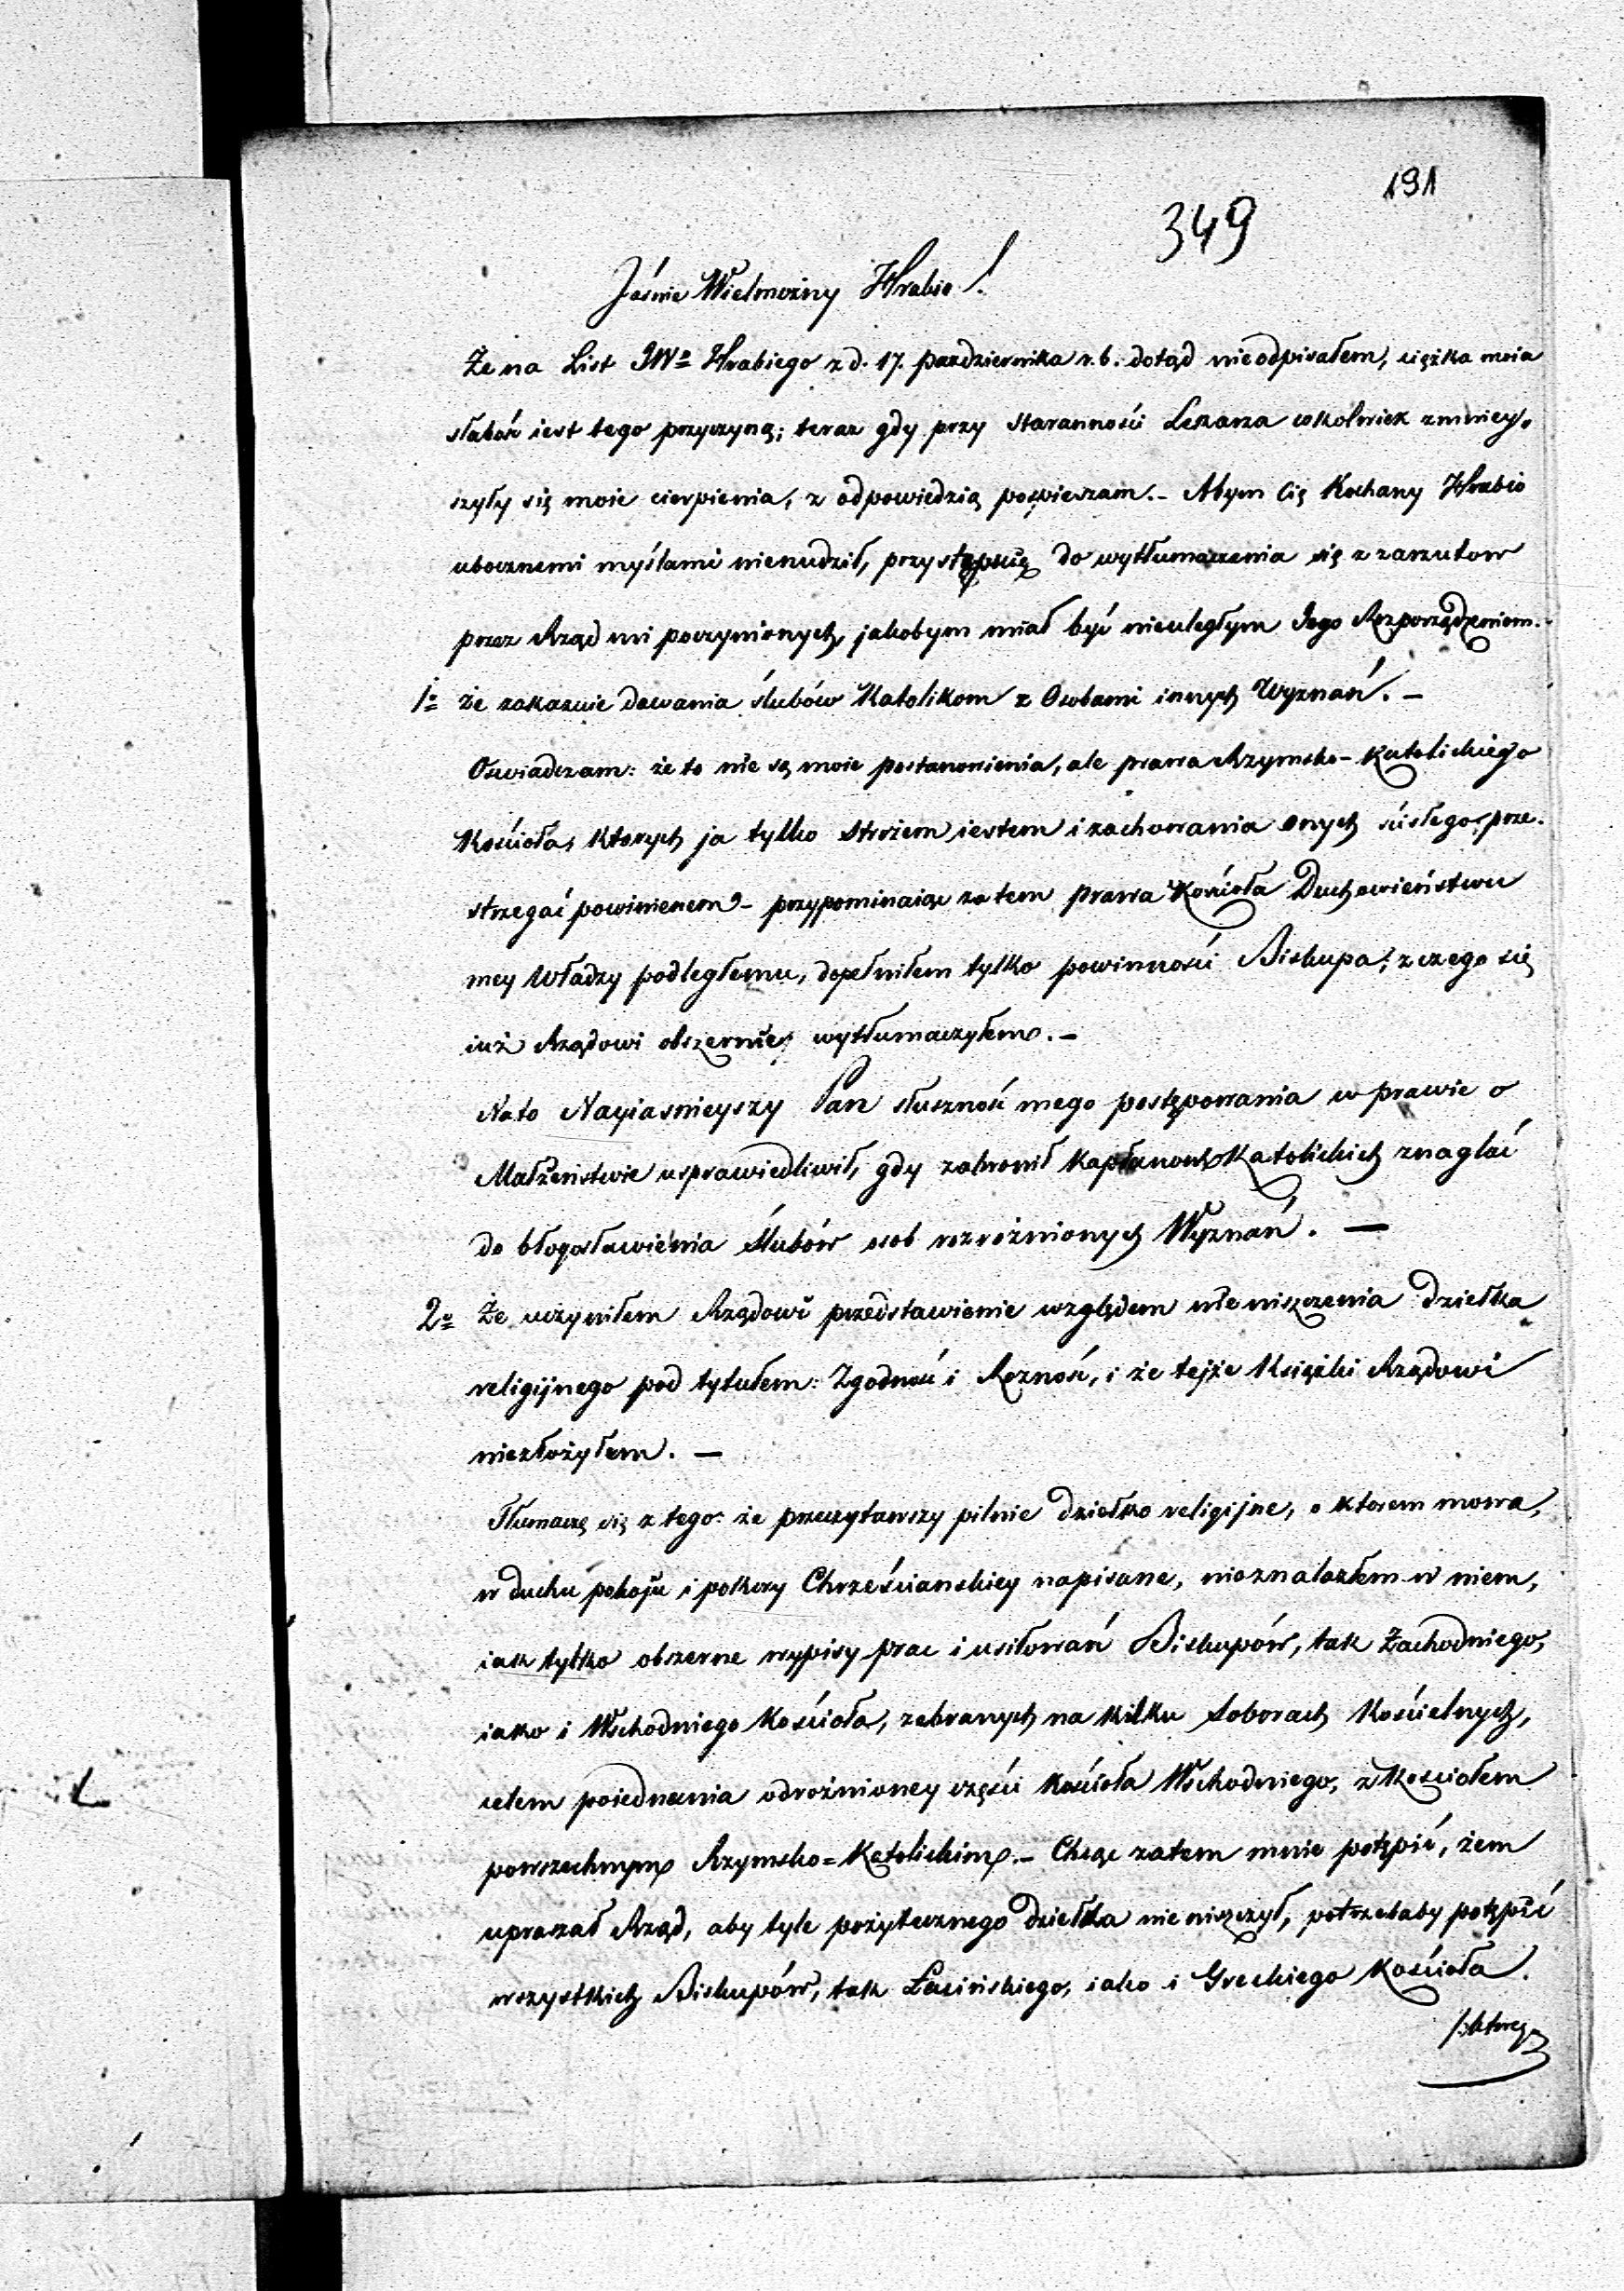 191
349
Jaśnie Wielmożny Hrabio!
Że na List JWº Hrabiego z d. 17. października r. b. dotąd nieodpisałem, ciężka moia
słabość iest tego przyczyną; teraz gdy przy staranności Lekarza cokolwiek zmniey-
szyły się moie cierpienia, z odpowiedzią pospieszam. – Abym Cię Kochany Hrabio
ubocznemi myślami nienudził, przystępuię do wytłumaczenia się z zarzutow
przez Rząd mi poczynionych, jakobym miał być nieuległym Jego Rozporządzeniom. –
1º że zakazuie dawania ślubów Katolikom z Osobami innych Wyznań. –
Oswiadczam: że to nie są moie postanowienia, ale prawa Rzymsko-Katolickiego
Kościoła, ktorych ja tylko Strożem iestem i zachowania onych ścisłego prze-
strzegać powinienem – przypominaiąc zatem prawa Kościoła Duchowieństwu
mey Władzy podległemu, dopełniłem tylko powinności Biskupa; z czego się
iuż Rządowi obszerniey wytłumaczyłem. –
Na to Nayiasnieyszy Pan słuszność mego postępowania w prawie o
Małżeństwie usprawiedliwił, gdy zabronił Kapłanow Katolickich znaglać
do błogosławienia Ślubów osob rozrożnionych Wyznań. —
2º Że uczyniłem Rządowi przedstawienie względem nie niszczenia dziełka
religijnego pod tytułem: Zgodność i Rozność, i że tejże Książki Rządowi
niezłożyłem. —
Tłumaczę się z tego: że przeczytawszy pilnie dziełko religijne, o ktorem mowa,
w duchu pokoju i pokory Chrześcianskiey napisane, nieznalazłem w niem,
iak tylko obszerne wypisy prac i usiłowań Biskupów, tak Zachodniego,
iako i Wschodniego Kościoła, zebranych na kilku Soborach Kościelnych,
celem poiednania odrożnioney części Kościoła Wschodniego, z Kosciołem
powszechnym Rzymsko=Katolickim. – Chcąc zatem mnie potępić, żem
upraszał Rząd, aby tyle pożytecznego dziełka nie niszczył, potrzebaby potępić
wszystkich Biskupów, tak Łacińskiego, iako i Greckiego Kościoła.